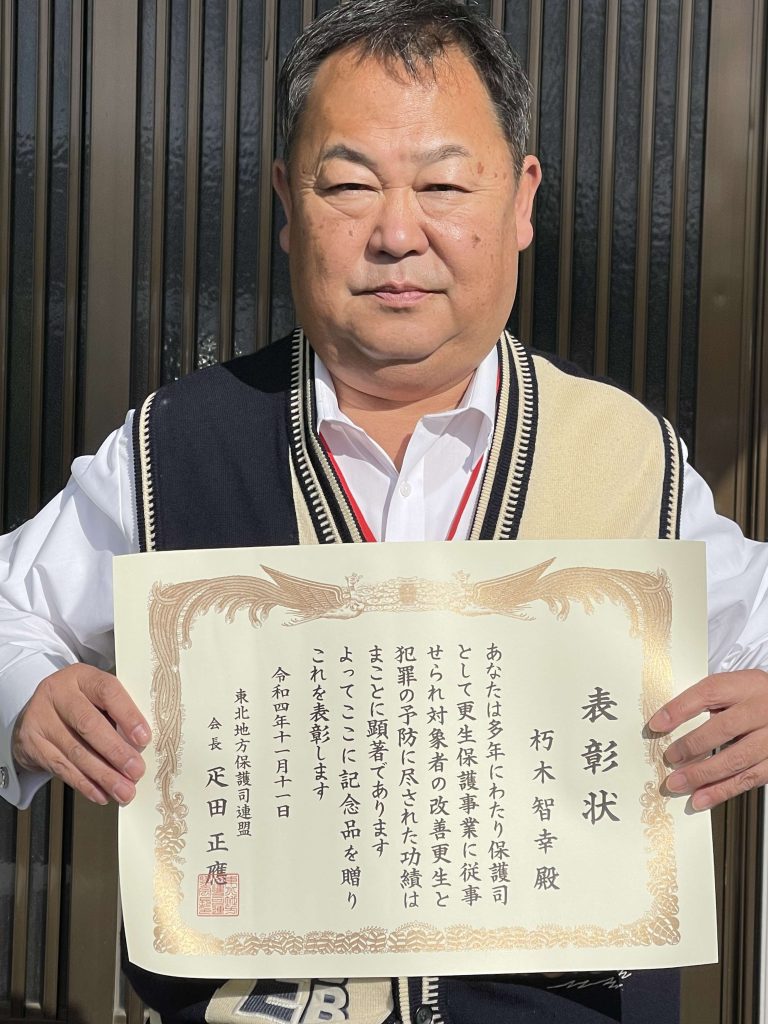 表彰状
朽木智幸殿
あなたは多年にわたり保護司
として更生保護事業に従事
せられ対象者の改善更生と
犯罪の予防に尽された功績は
まことに顕著であります
よってここに記念品を贈り
これを表彰します
令和四年十一月十一日
東北地方保護司連盟
会長 疋田正應